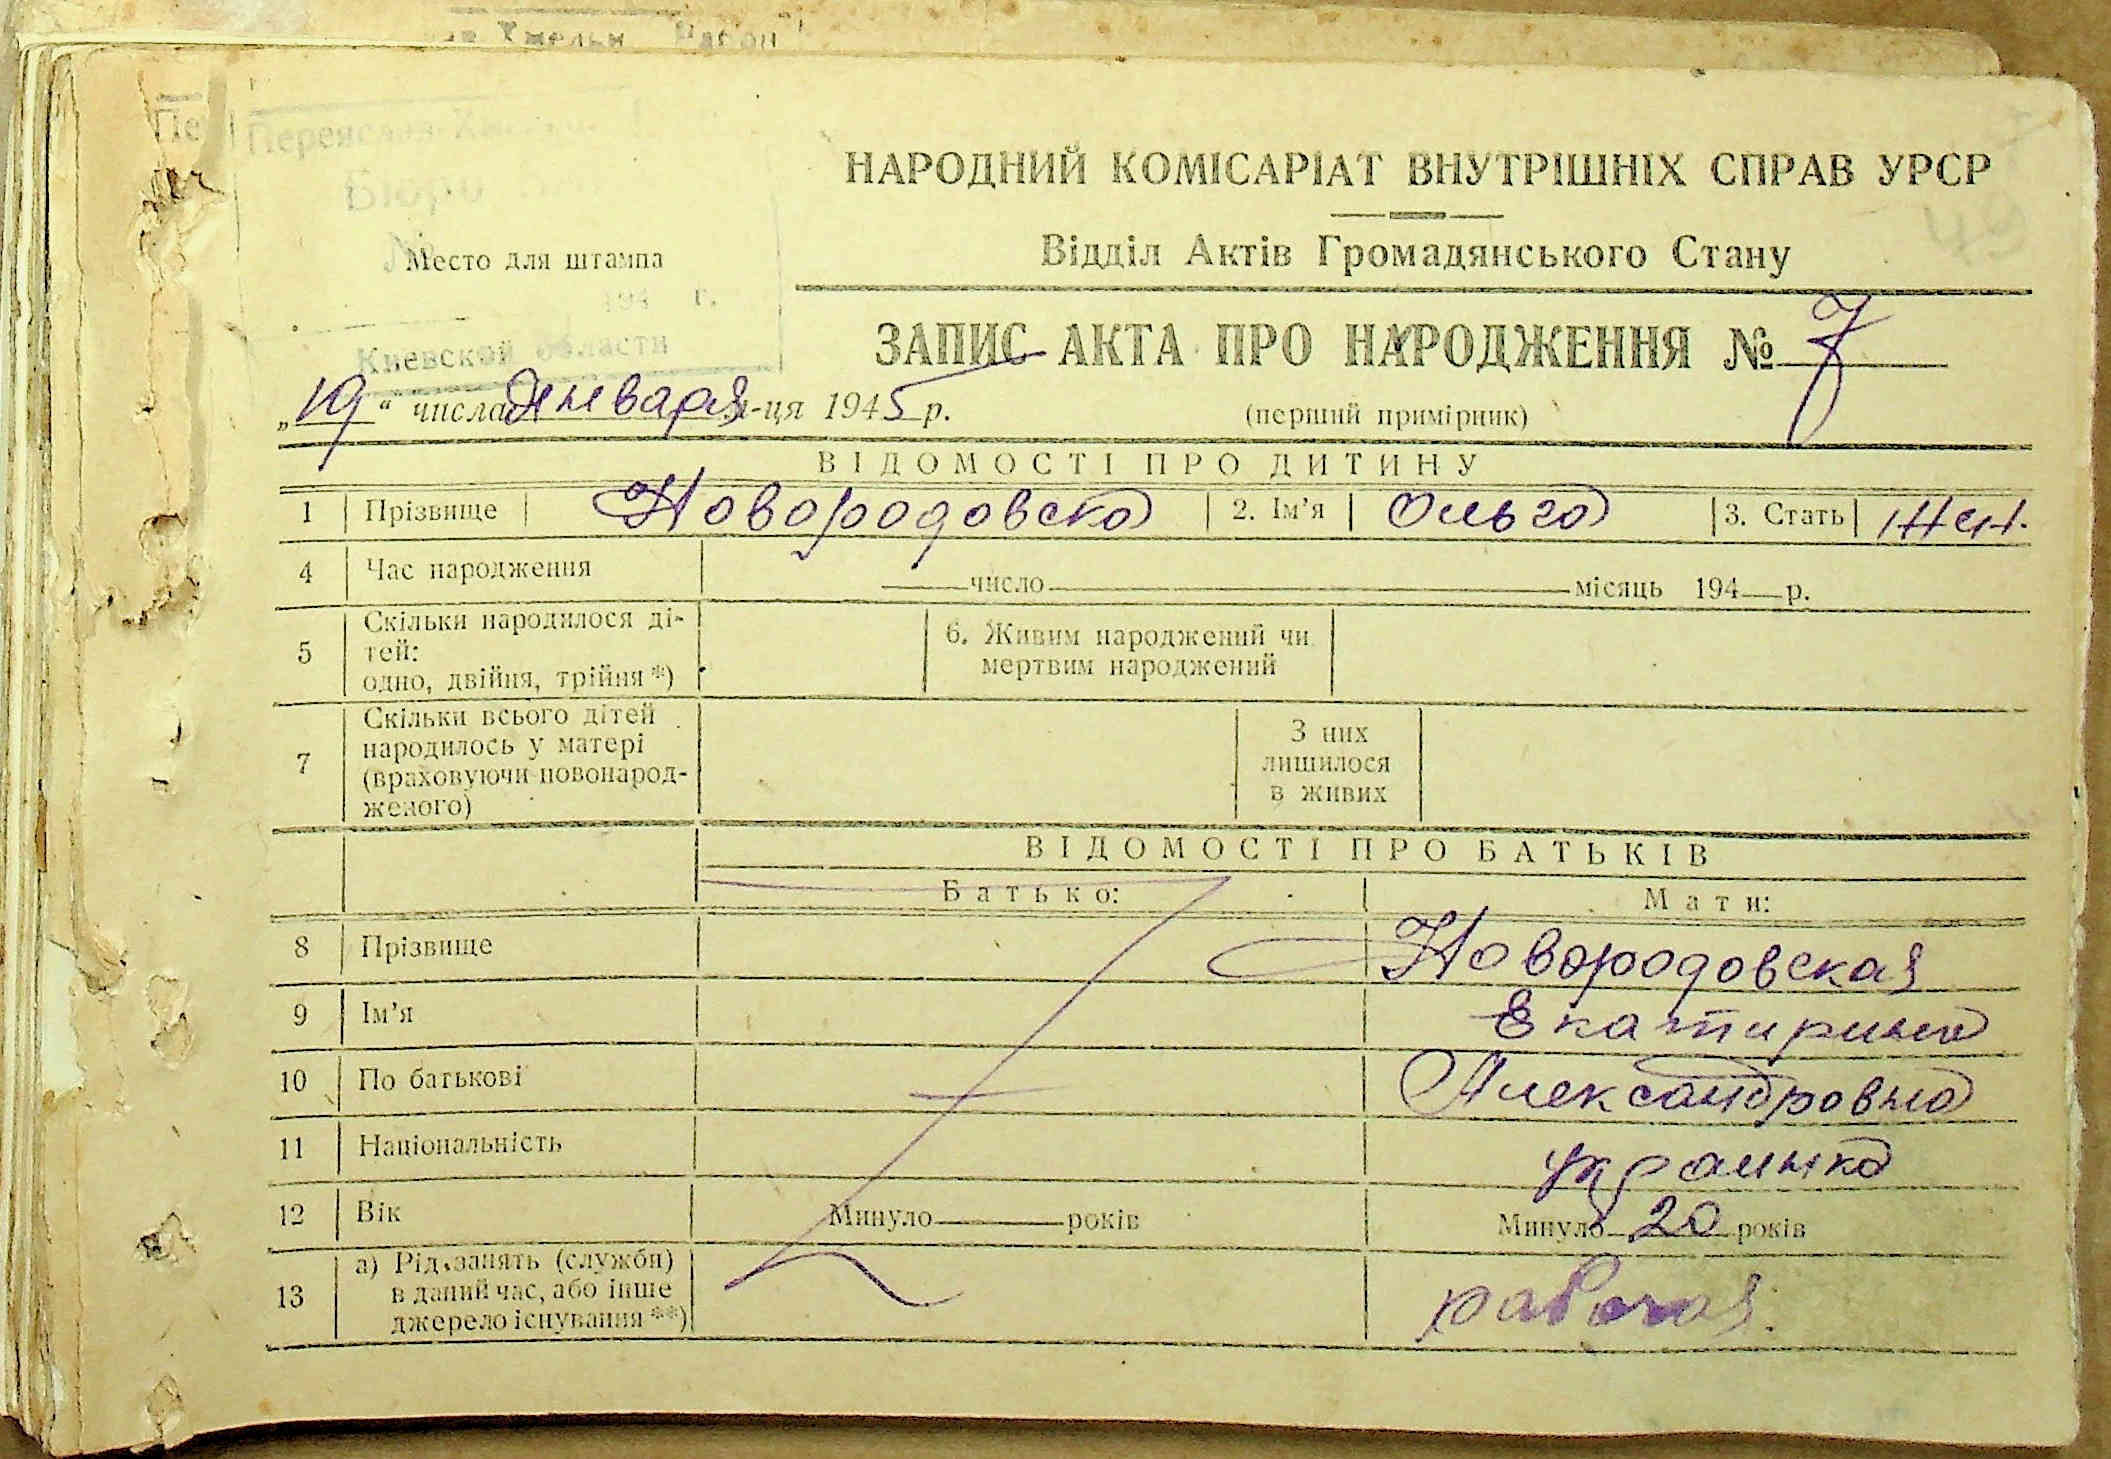 Хмельн. Район
Пе
Переяслав-Хм
Бюро
№
Место для штампа
194 г.
Киевской области
НАРОДНИЙ КОМІСАРІАТ ВНУТРІШНІХ СПРАВ УРСР
49
Відділ Актів Громадянського Стану
ЗАПИС АКТА ПРО НАРОДЖЕННЯ № 7
„19“ числа января м-ця 1945 р.
(перший примірник)
ВІДОМОСТІ ПРО ДИТИНУ
1 Прізвище Новородовска 2. Ім’я Ольга 3. Стать жен.
4 Час народження число місяць 194 р.
5 Скільки народилося ді-
тей:
одно, двійня, трійня *)
6. Живим народжений чи
мертвим народжений
7 Скільки всього дітей
народилось у матері
(враховуючи новонарод-
женого)
З них
лишилося
в живих
ВІДОМОСТІ ПРО БАТЬКІВ
Батько: Мати:
8 Прізвище Новородовская
9 Ім’я Екатирина
10 По батькові Александровна
11 Національність украинка
12 Вік Минуло років Минуло 20 років
13 а) Рід занять (служби)
в даний час, або інше
джерело існування **)
рабочая.